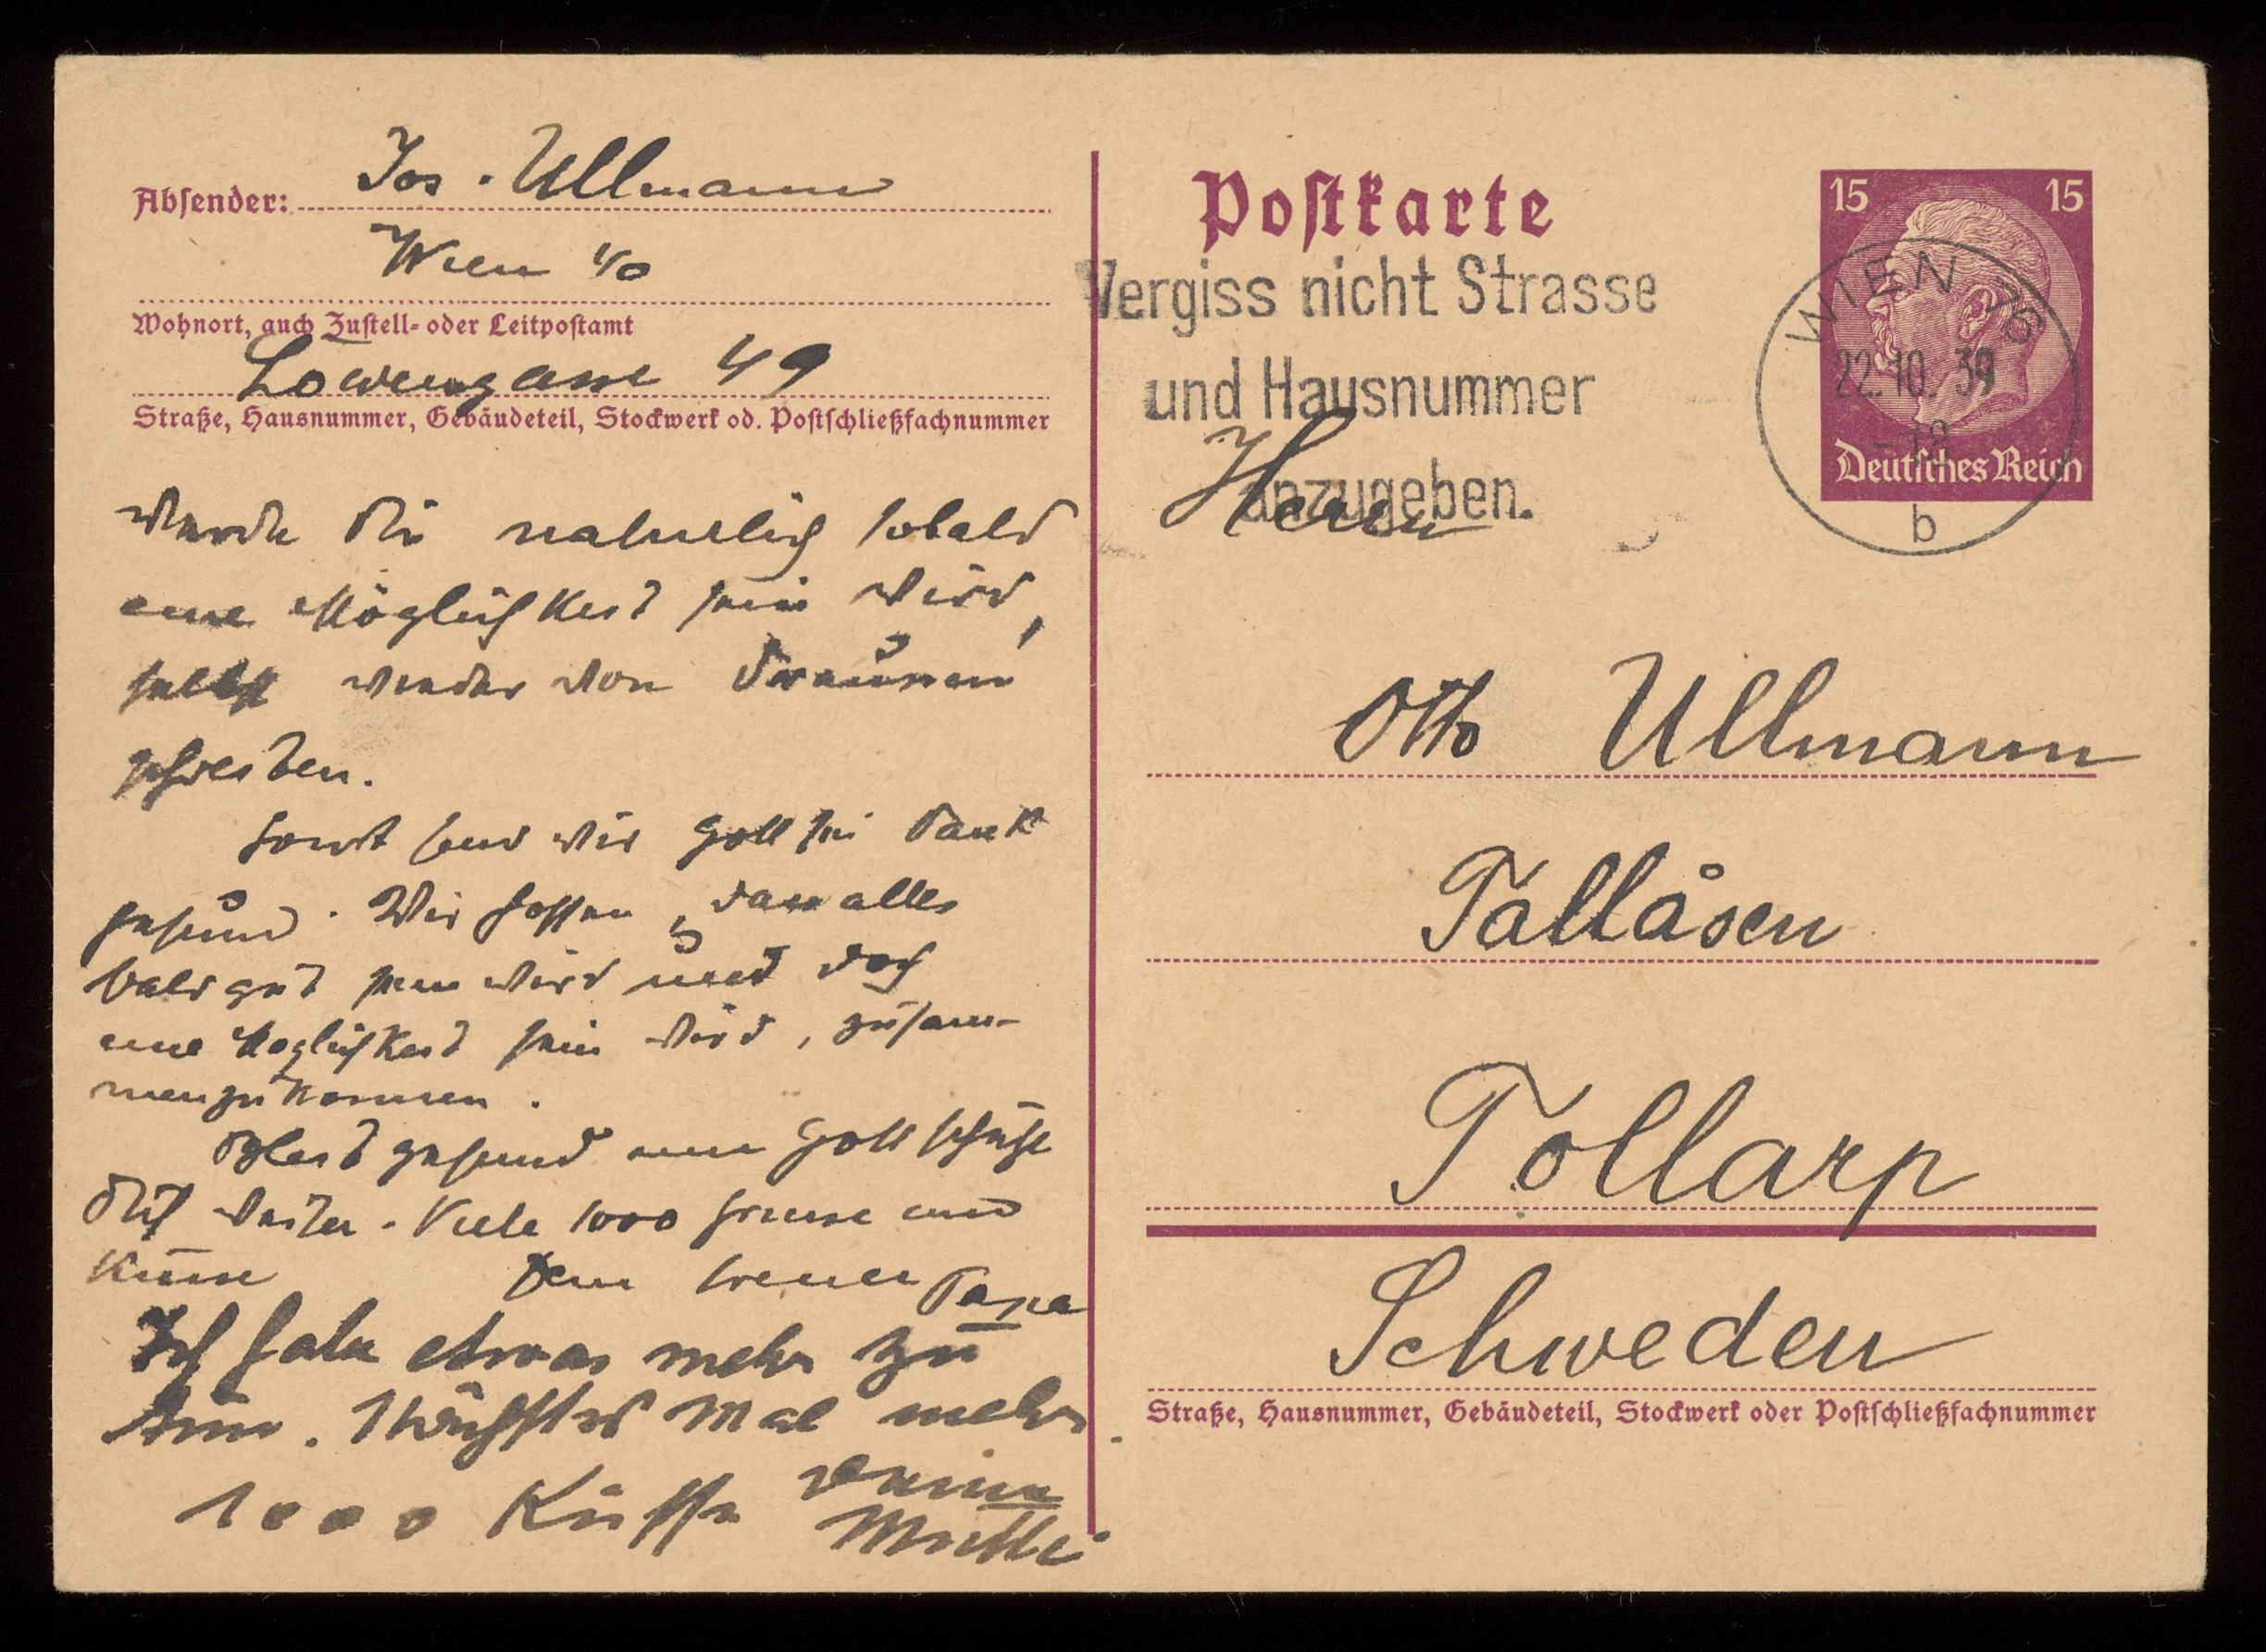 Absender: Jos. Ullmann
Wien 40
Wohnort, auch Zustell- oder Leitpostamt
Löwengasse 49
Straße, Hausnummer, Gebäudeteil, Stockwerk od. Postschließfachnummer
werde Dir natürlich sobald
eine Möglichkeit sein wird,
selbst wieder von
.
Sonst sind wir Gott sei Dank
gesund. Wir hoffen, dass alles
bald gut sein wird und doch
eine Möglichkeit sein wird, zusam-
menzukommen.
Bleib gesund und Gott schütze
Dich weiter. Viele 1000 Grüsse und
Küsse Dein treuer Papa
Ich habe etwas mehr zu
tun. Nächstes Mal mehr.
1000 Küsse Deine
Mutti
Postkarte
Vergiss nicht Strasse
und Hausnummer
anzugeben.
15 15
WIEN 76
22.10.39
Deutsches Reich
b
Herrn
Otto Ullmann
Tallåsen
Tollarp
Schweden
Straße, Hausnummer, Gebäudeteil, Stockwerk oder Postschließfachnummer